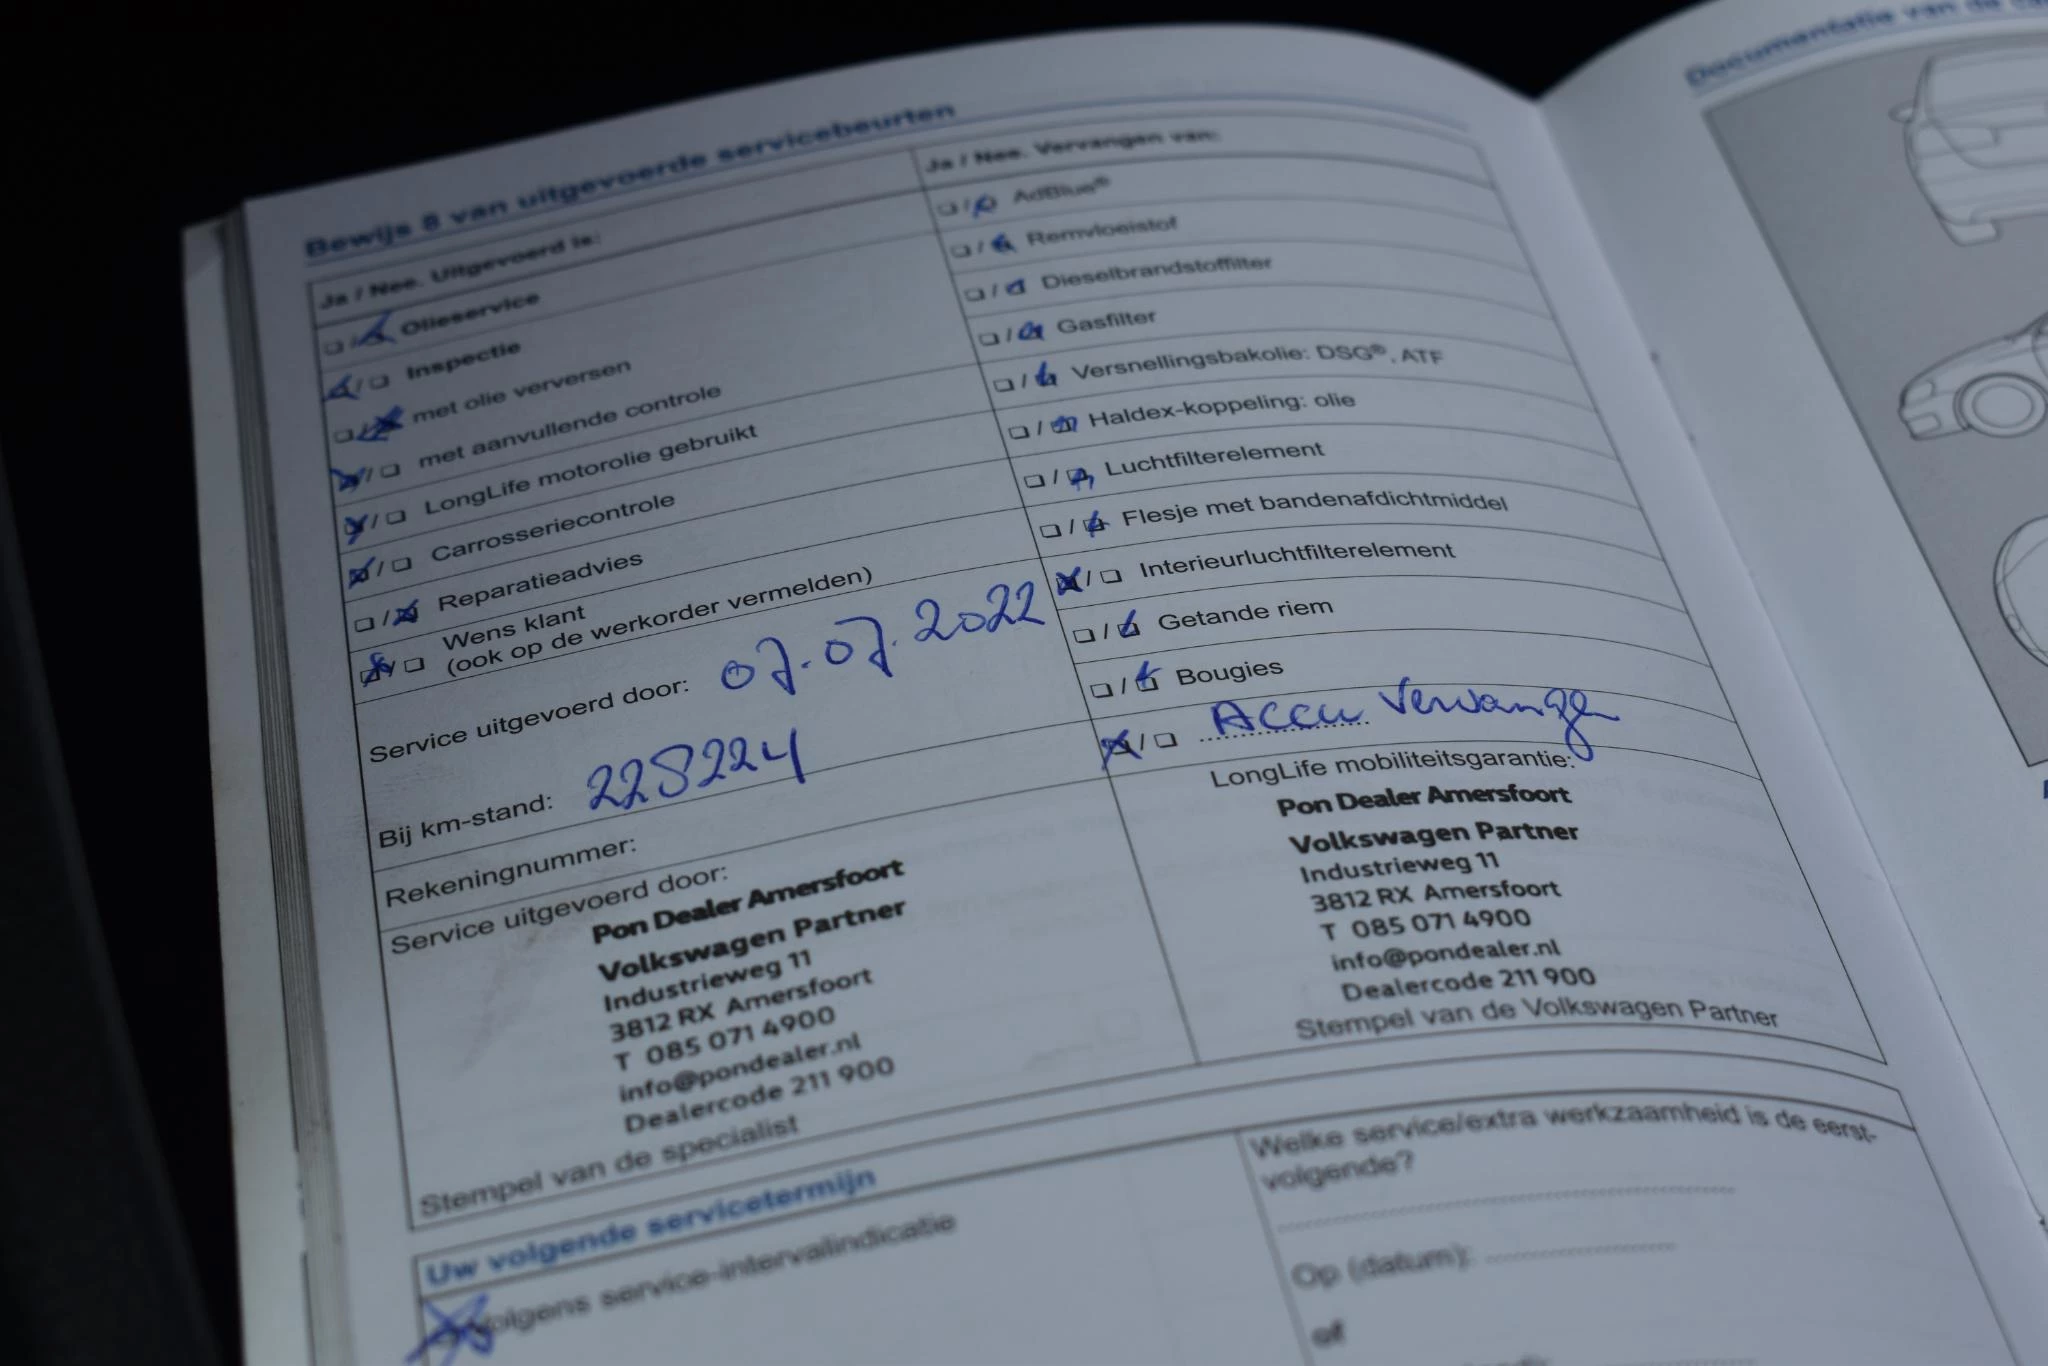 Documentatie van de
Bewijs 8 van uitgevoerde servicebeurten
Ja / Nee. Uitgevoerd is:
Olieservice
Inspectie
met olie verversen
met aanvullende controle
LongLife motorolie gebruikt
Carrosseriecontrole
Reparatieadvies
Wens klant
(ook op de werkorder vermelden)
Service uitgevoerd door: 07.07.2022
Bij km-stand: 228224
Rekeningnummer:
Service uitgevoerd door:
Pon Dealer Amersfoort
Volkswagen Partner
Industrieweg 11
3812 RX Amersfoort
T 085 071 4900
info@pondealer.nl
Dealercode 211 900
Stempel van de specialist
Ja / Nee. Vervangen van:
AdBlue®
Remvloeistof
Dieselbrandstoffilter
Gasfilter
Versnellingsbakolie: DSG®, ATF
Haldex-koppeling: olie
Luchtfilterelement
Flesje met bandenafdichtmiddel
Interieurluchtfilterelement
Getande riem
Bougies
Accu vervangen
LongLife mobiliteitsgarantie:
Pon Dealer Amersfoort
Volkswagen Partner
Industrieweg 11
3812 RX Amersfoort
T 085 071 4900
info@pondealer.nl
Dealercode 211 900
Stempel van de Volkswagen Partner
Uw volgende servicetermijn
Volgens service-intervalindicatie
Welke service/extra werkzaamheid is de eerst-
volgende?
Op (datum):
of